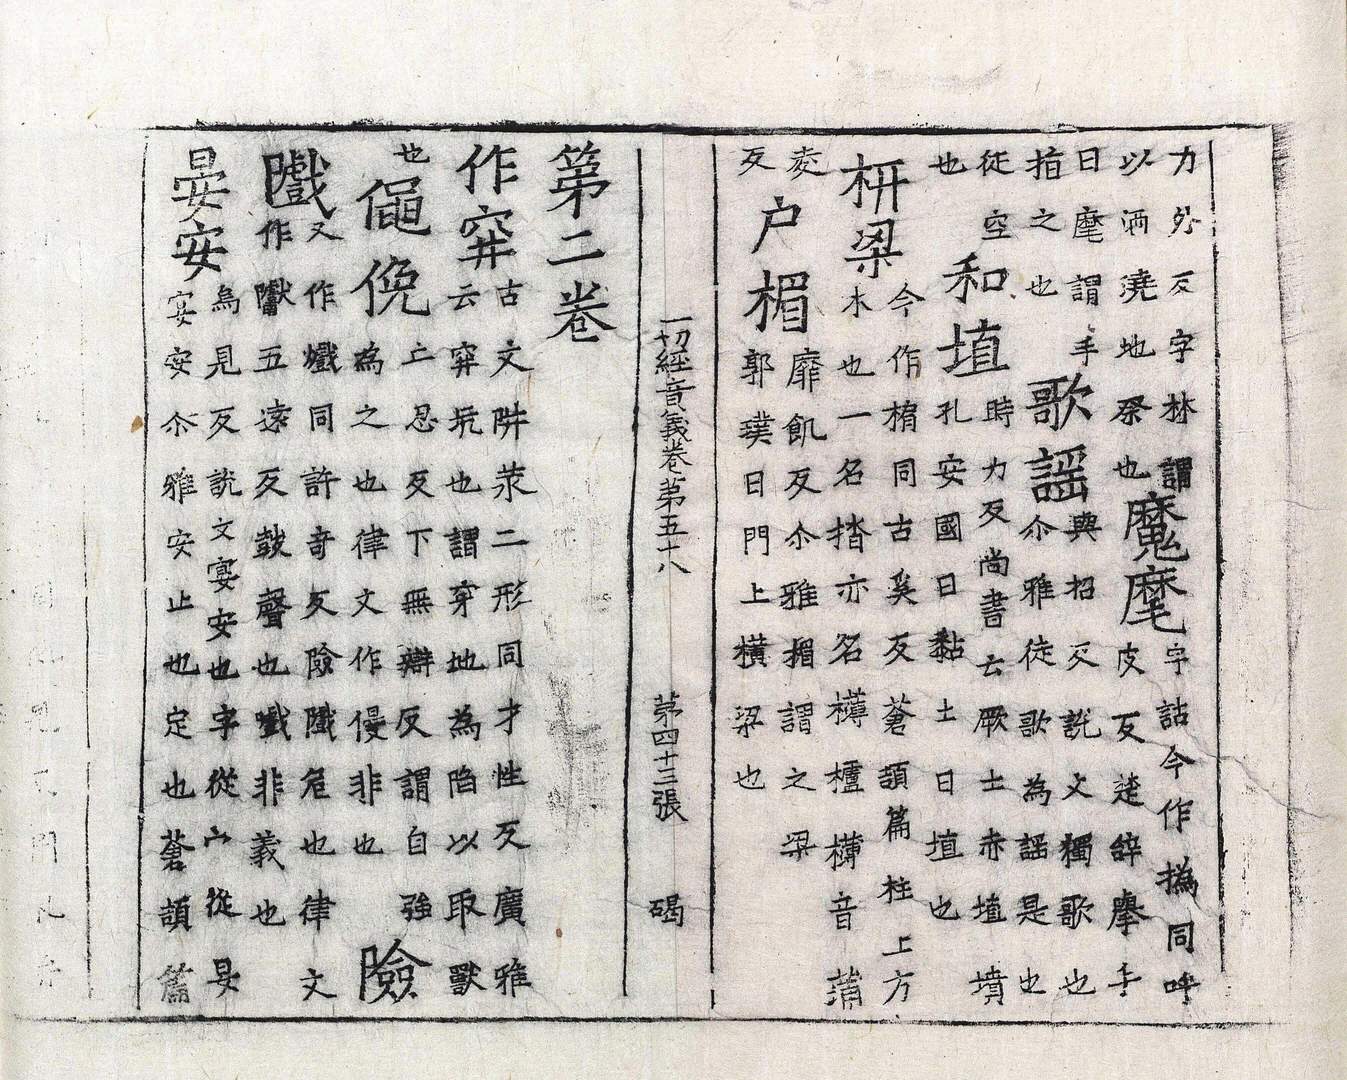 力外反字林謂
以酒澆地祭也魔麾字詁今作撝同呼
皮反楚辞擧手
曰麾謂手
指之也歌謡與招反説文獨歌也
尒雅徒歌為謡是也
徒空和埴時力反尚書云厥土赤埴墳
也孔安國曰黏土曰埴也
枅梁今作楕同古奚反蒼頡篇柱上方
木也一名㭼亦名欂櫨欂音蒲
麦户楣靡飢反尒雅楣謂之梁
反郭璞曰門上横梁也
一切經音義卷第五十八 第四十三張 碣
第二卷
作穽古文阱汬二形同才性反廣雅
云穽坑也謂穿地為陷以取獸
也僶俛亡忍反下無辯反謂自強
為之也律文作僈非也險
巇又作㠣同許奇反險巇危也律文
作䡾五遠反鼓聲也巇非義也
晏安為見反説文宴安也字從宀從㫃
宴安尒雅安止也定也蒼頡篇